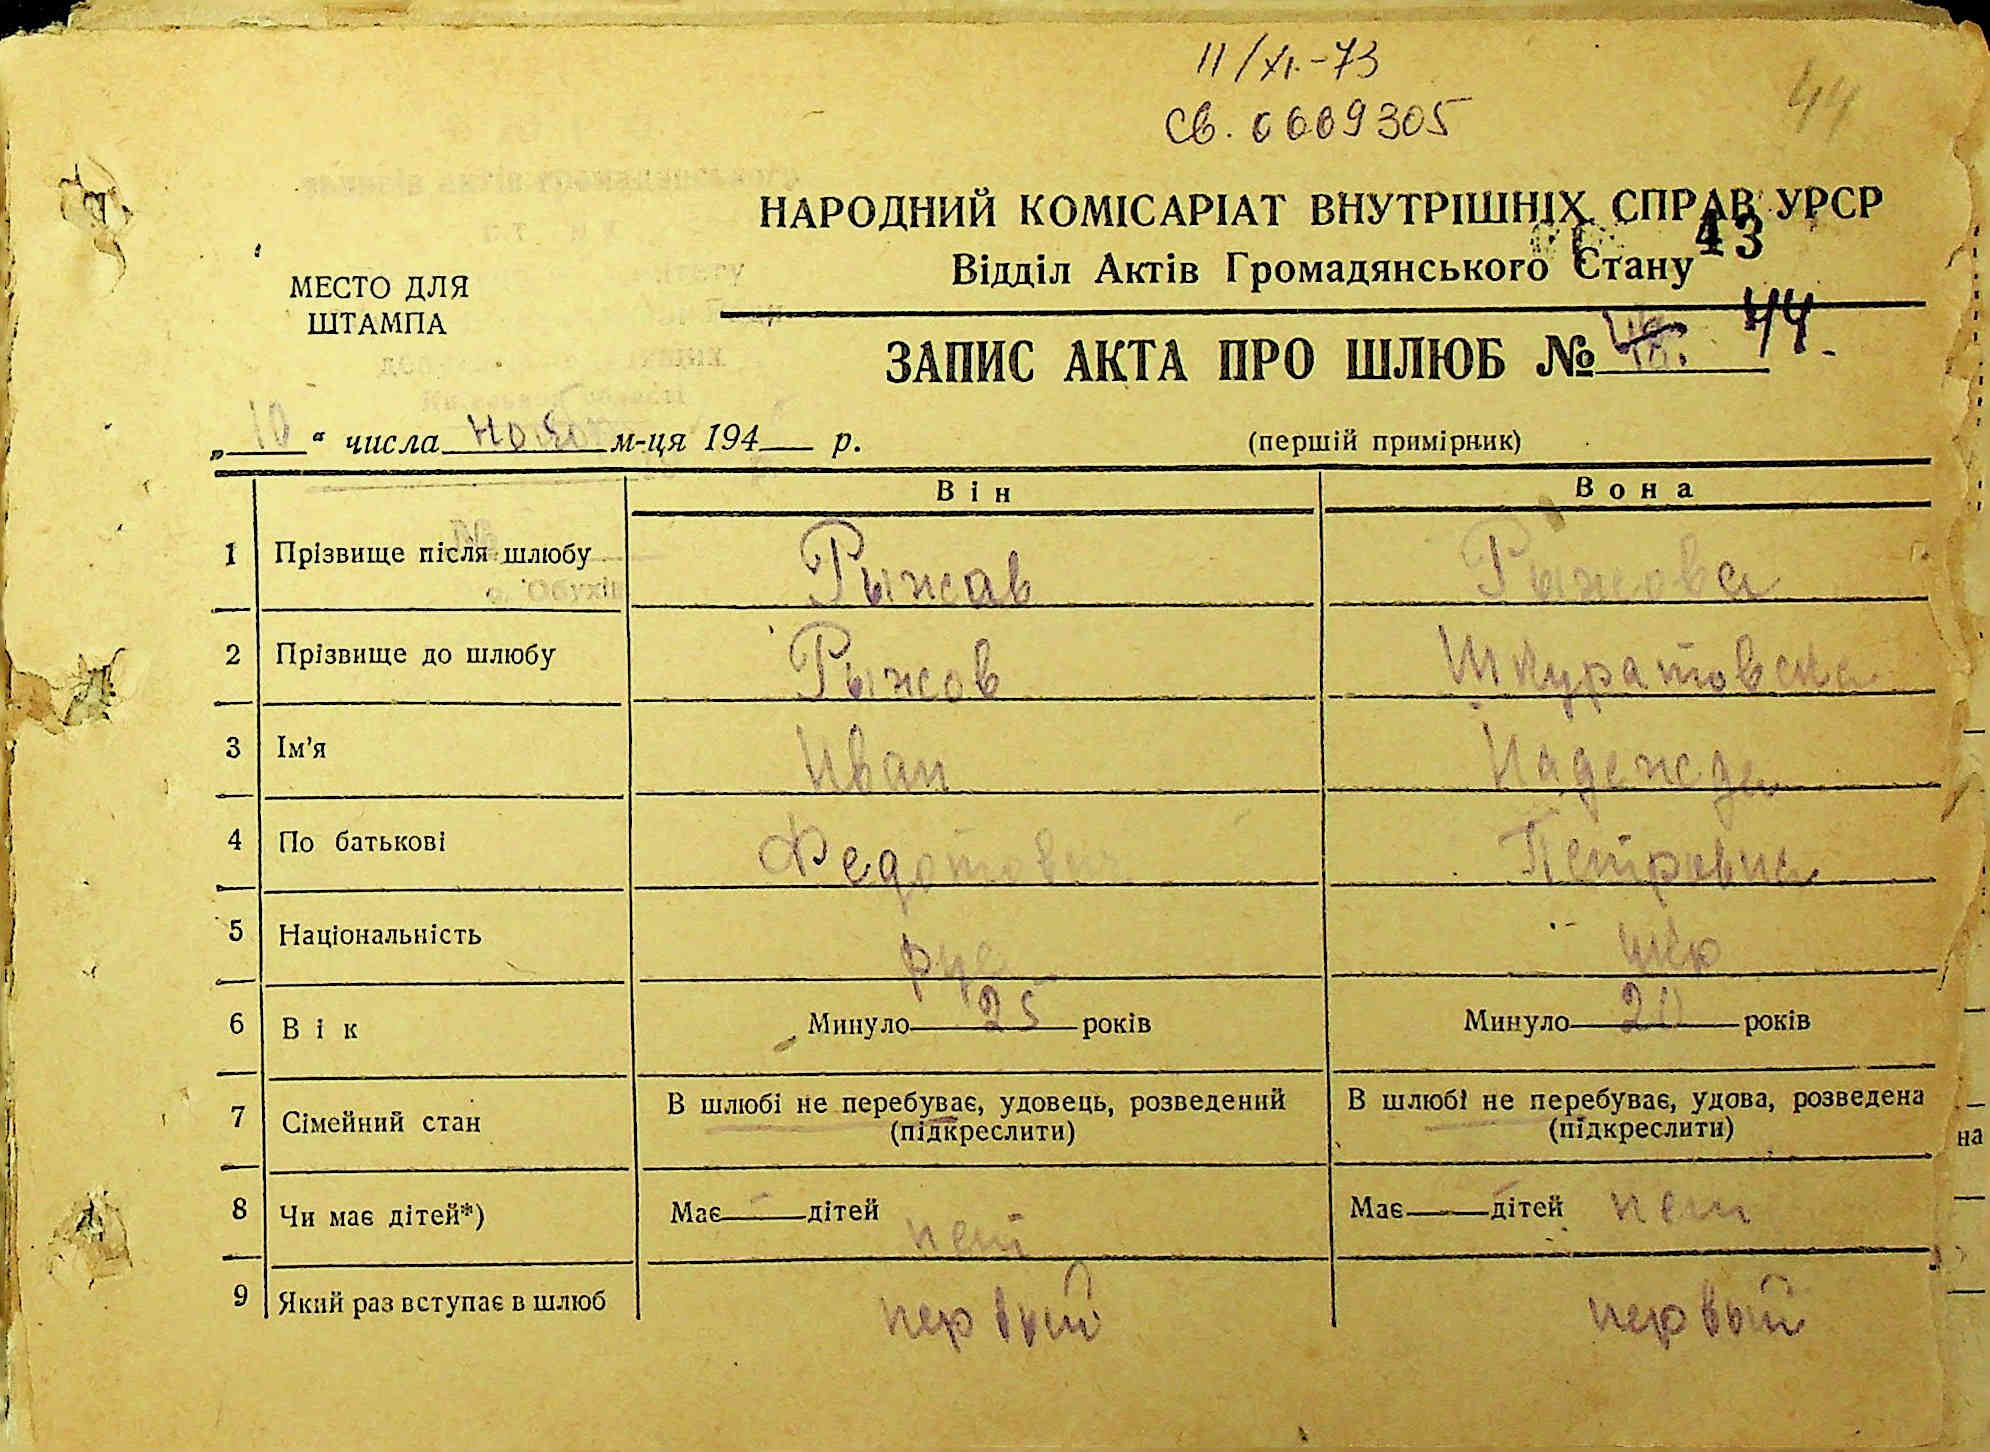 11/XI.-73
44
Св. 0009305
НАРОДНИЙ КОМІСАРІАТ ВНУТРІШНІХ СПРАВ УРСР
43
Відділ Актів Громадянського Стану
МЕСТО ДЛЯ
ШТАМПА
ЗАПИС АКТА ПРО ШЛЮБ № 44.
„ 10 “ числа м-ця 194 р.
(перший примірник)
Він Вона
1 Прізвище після шлюбу Рыжав Рыжова
2 Прізвище до шлюбу Рыжов Шкуратовска
3 Ім'я Иван Надежда
4 По батькові Федотович Петровна
5 Національність рус укр
6 Вік Минуло 25 років Минуло 20 років
7 Сімейний стан В шлюбі не перебуває, удовець, розведений (підкреслити) В шлюбі не перебуває, удова, розведена (підкреслити)
на
8 Чи має дітей*) Має — дітей нет Має — дітей нет
9 Який раз вступає в шлюб первый первый